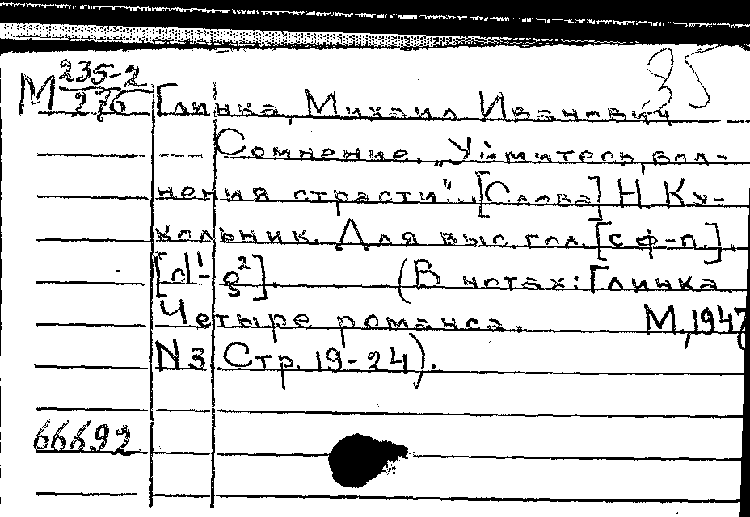 35
М 235-2/276 Глинка, Михаил Иванович
Сомнение. „Уймитесь, вол-
нения страсти". [Слова] Н. Ку-
кольник. Для выс. гол. [с ф-п.].
[d¹-g²]. (В нотах: Глинка
Четыре романса. М., 1947
N3 Стр. 19-24).
66692